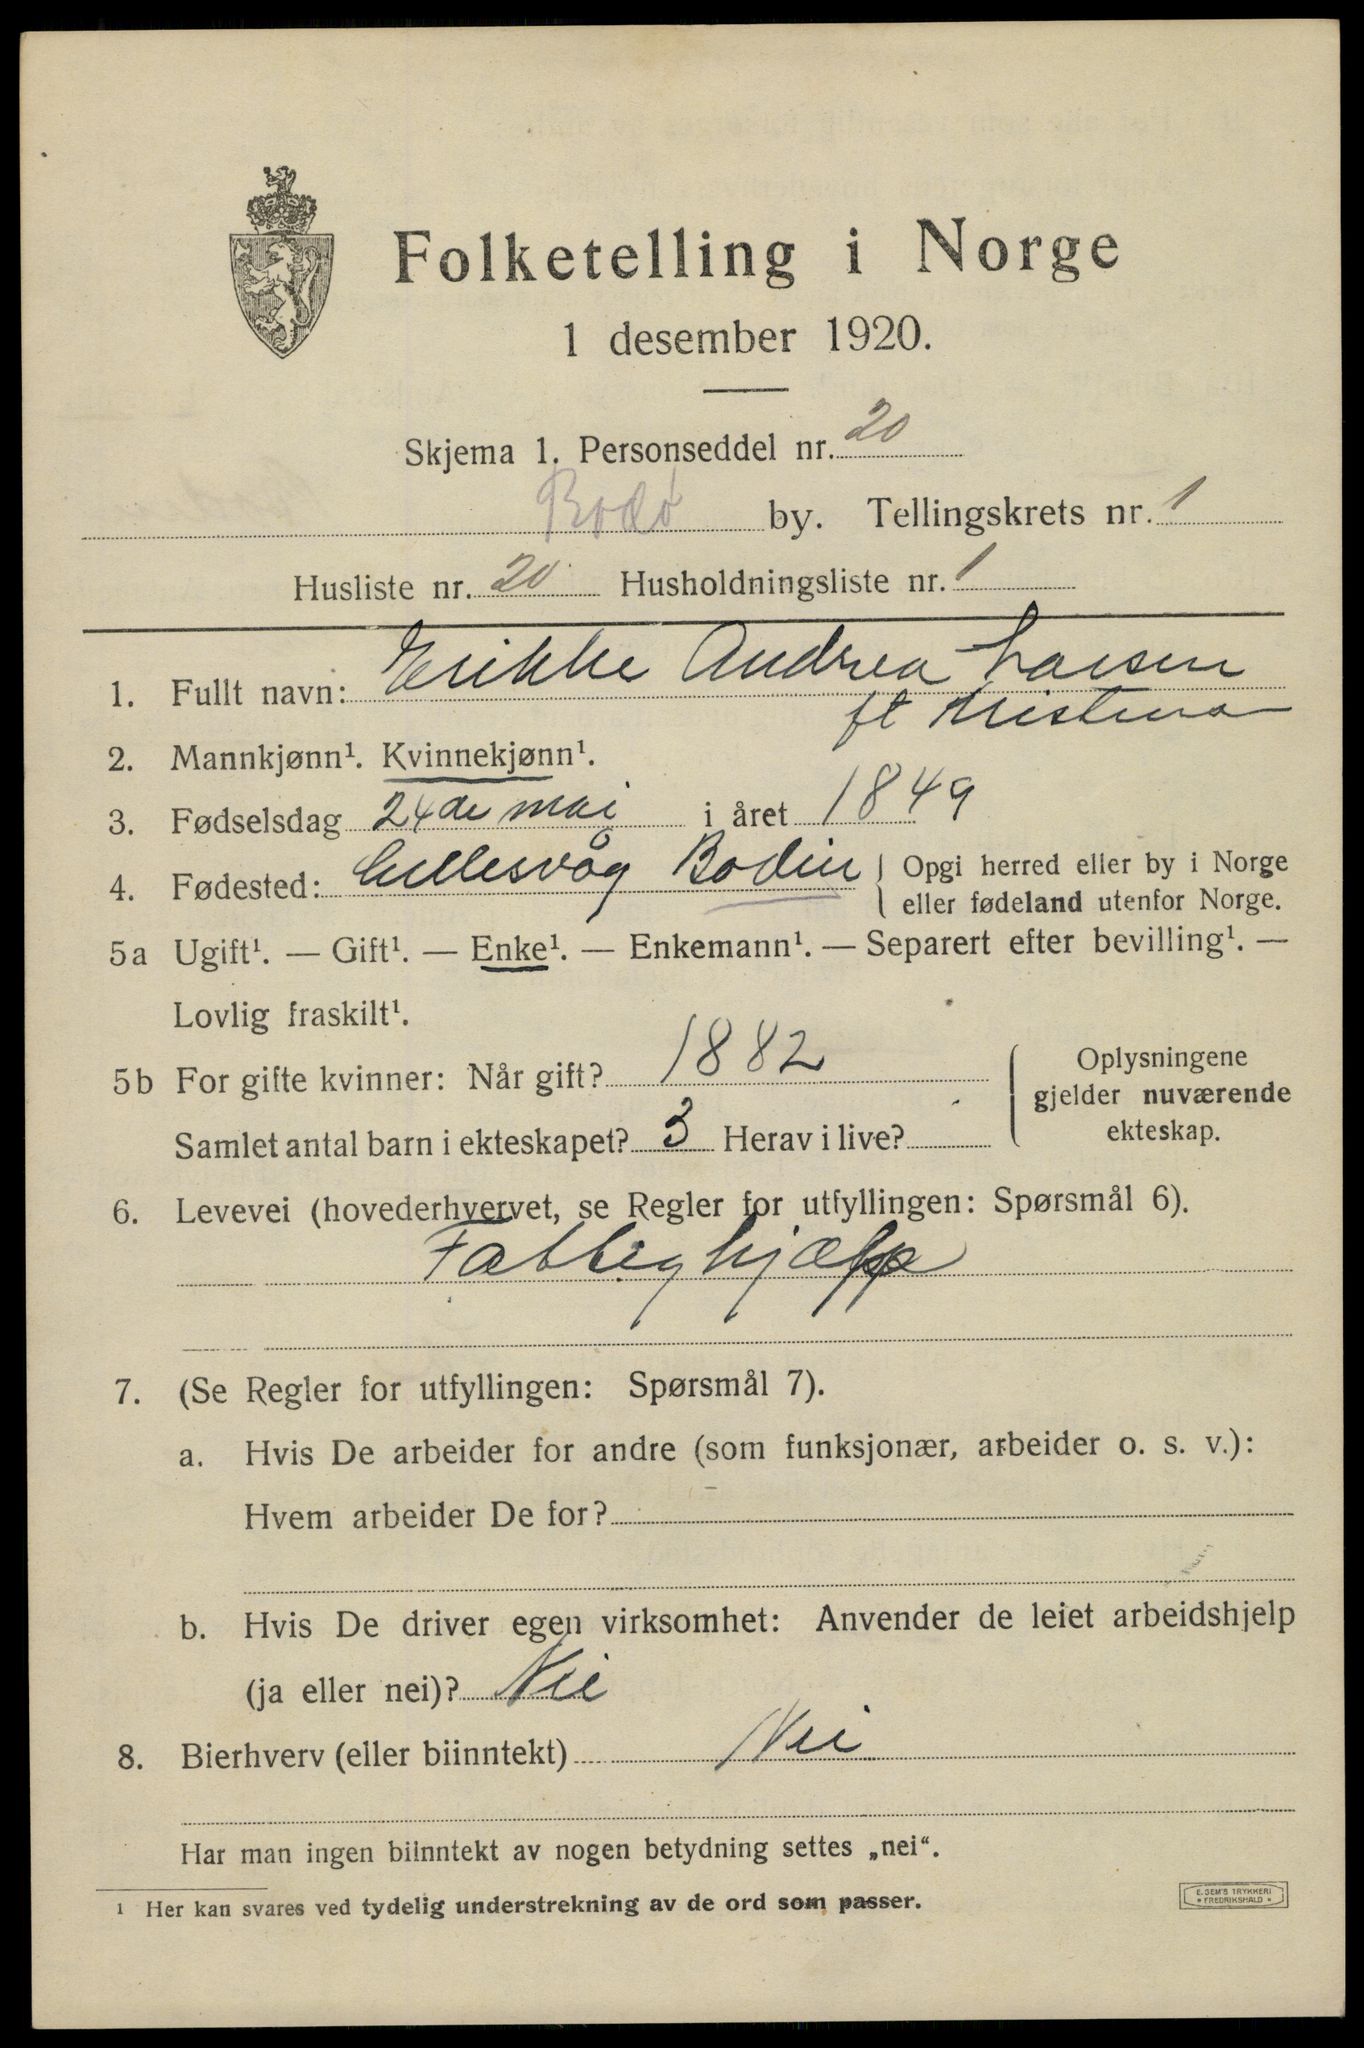 Folketelling i Norge
1 desember 1920.
Skjema 1. Personseddel nr. 20
Bodø by. Tellingskrets nr. 1
Husliste nr. 20 Husholdningsliste nr. 1
1. Fullt navn: Erikke Andrea Larsen
ft
2. Mannkjønn¹. Kvinnekjønn¹.
3. Fødselsdag 24de mai i året 1849
4. Fødested: Bodin { Opgi herred eller by i Norge
eller fødeland utenfor Norge.
5a Ugift¹. — Gift¹. — Enke¹. — Enkemann¹. — Separert efter bevilling¹. —
Lovlig fraskilt¹.
5b For gifte kvinner: Når gift? 1882
Samlet antal barn i ekteskapet? 3 Herav i live?
Oplysningene
gjelder nuværende
ekteskap.
6. Levevei (hovederhvervet, se Regler for utfyllingen: Spørsmål 6).
Fattighjælp
7. (Se Regler for utfyllingen: Spørsmål 7).
a. Hvis De arbeider for andre (som funksjonær, arbeider o. s. v.):
Hvem arbeider De for?
b. Hvis De driver egen virksomhet: Anvender de leiet arbeidshjelp
(ja eller nei)? Nei
8. Bierhverv (eller biinntekt) Nei
Har man ingen biinntekt av nogen betydning settes „nei“.
¹ Her kan svares ved tydelig understrekning av de ord som passer.
E. SEM'S TRYKKERI
* FREDRIKSHALD *